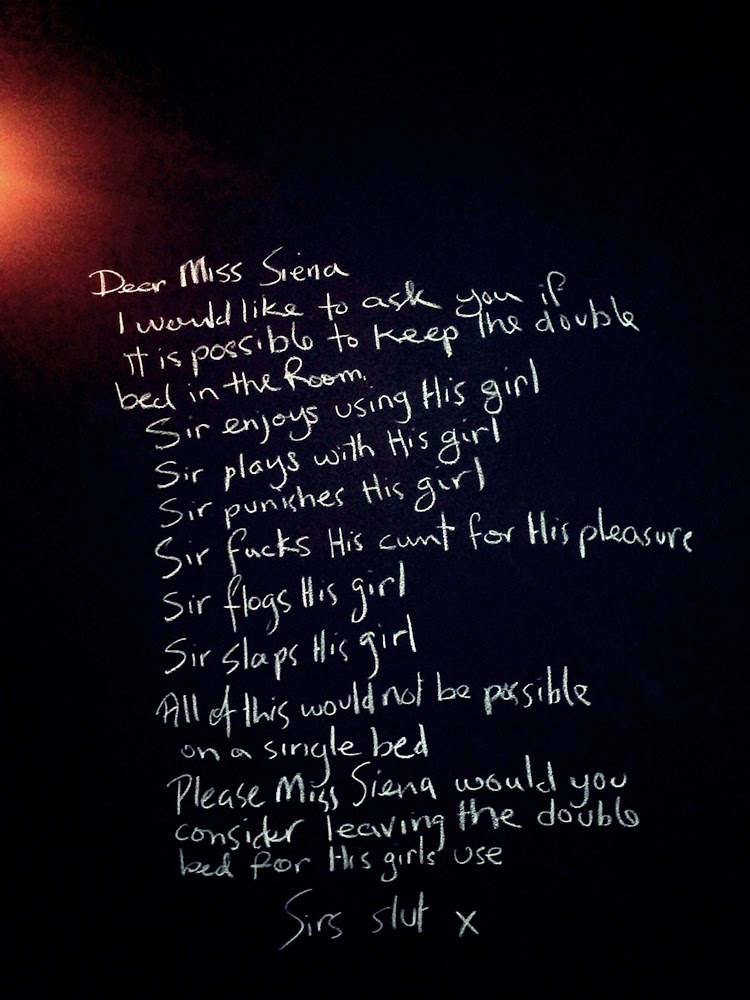 Dear Miss Siena
I would like to ask you if
it is possible to keep the double
bed in the Room.
Sir enjoys using His girl
Sir plays with His girl
Sir punishes His girl
Sir fucks His cunt for His pleasure
Sir flogs His girl
Sir slaps His girl
All of this would not be possible
on a single bed
Please Miss Siena would you
consider leaving the double
bed for His girls use
Sirs slut x